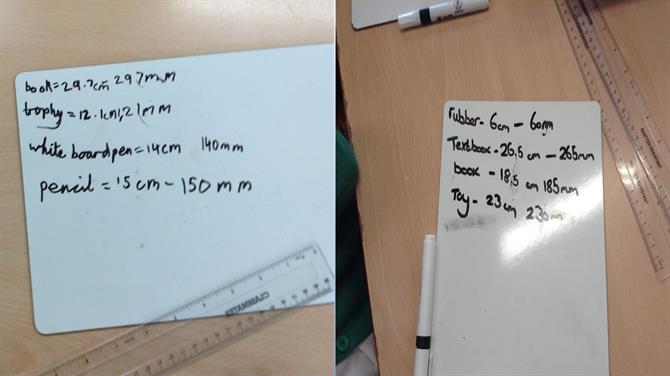 book = 29.7cm 297mm
trophy = 12.1cm, 121mm
whiteboardpen = 14cm 140mm
pencil = 15cm - 150mm
CLASSMATES
rubber - 6cm - 60mm
Textbook - 26.5 cm - 265mm
book - 18.5 cm 185mm
Toy - 23cm 230mm